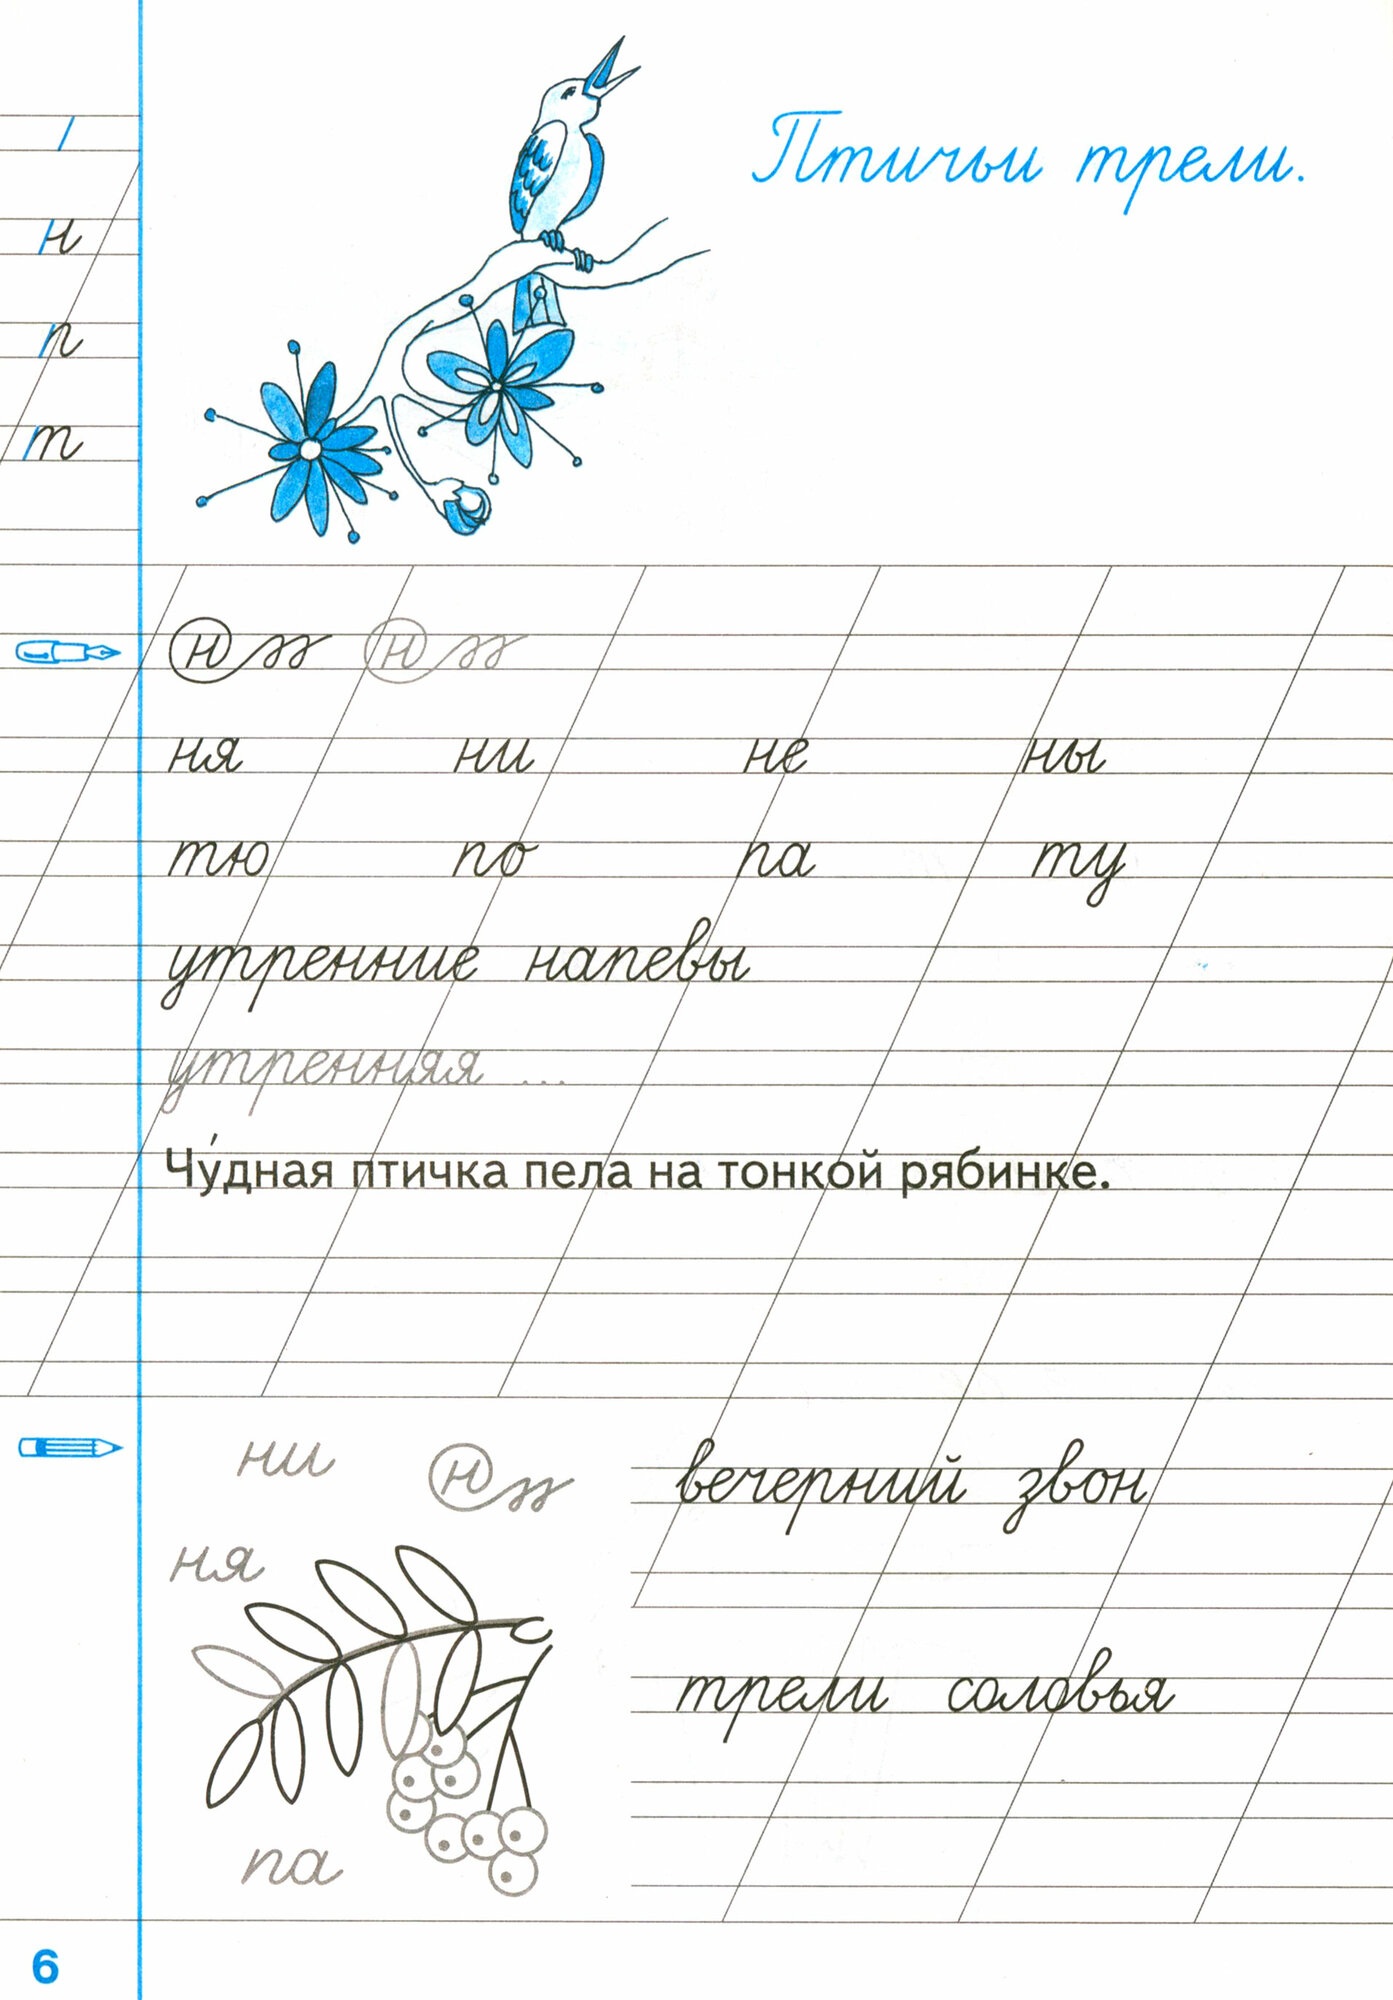 Птичьи трели.
н
п
т
н н
ня ни не ны
тю по па ту
утренние напевы
утренняя ...
Чу́дная птичка пела на тонкой рябинке.
ни н
вечерний звон
ня
трели соловья
па
6